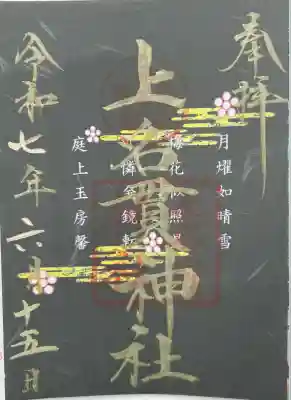 奉拝
月耀如晴雪
梅花似照星
可憐金鏡転
庭上玉房馨
上名貫神社
令和七年六月十五日